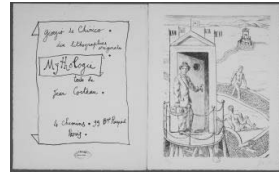 Giorgio de Chirico.
dix lithographies
originales
Mythologie
texte de
Jean Cocteau.
4 Chemins. 99 Bd Raspail
Paris.